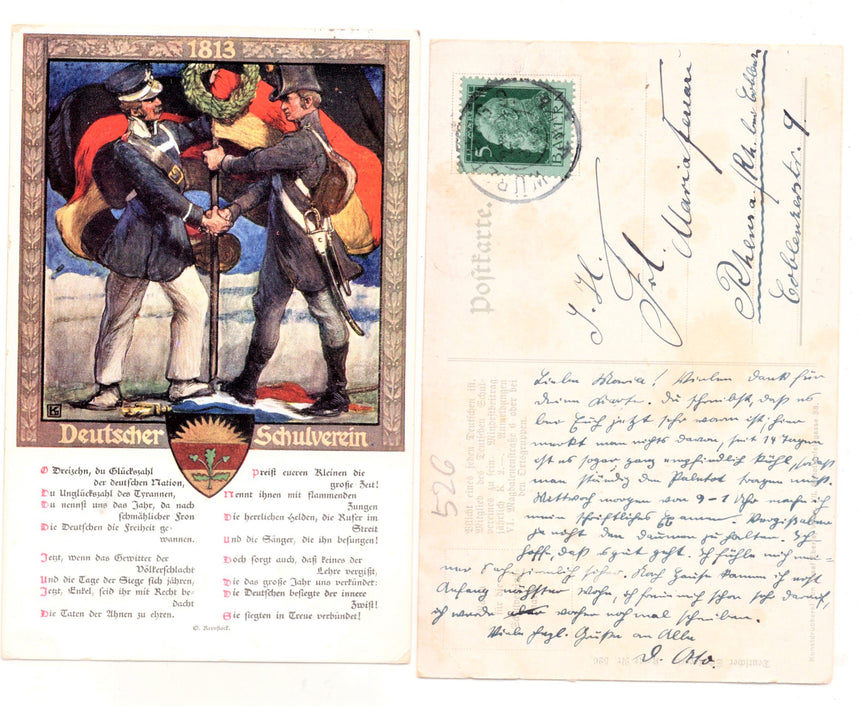 1813
Deutscher Schulverein
O Dreizehn, du Glückszahl
der deutschen Nation,
Du Unglückszahl des Tyrannen,
Du nennst uns das Jahr, da nach
schmählicher Fron
Die Deutschen die Freiheit ge-
wannen.
Jetzt, wenn das Gewitter der
Völkerschlacht
Und die Tage der Siege sich jähren,
Jetzt, Enkel, seid ihr mit Recht be-
dacht
Die Taten der Ahnen zu ehren.
Preist eueren Kleinen die
große Zeit!
Nennt ihnen mit flammenden
Zungen
Die herrlichen Helden, die Rufer im
Streit
Und die Sänger, die ihn besungen!
Doch sorgt auch, daß keines der
Lehre vergißt,
Die das große Jahr uns verkündet:
Die Deutschen besiegte der innere
Zwist!
Sie siegten in Treue verbündet!
O. Kernstock.
5
BAYERN
WÜRZ
Postkarte.
I. H.
Frl. Maria Ferrari
Rhens a/Rh. bei Coblenz
Coblenzerstr. 9
526
Pflicht eines jeden Deutschen ist,
Mitglied des Deutschen Schul-
vereines zu sein. Mitgliedsbeitrag
jährlich K 2.—. Anmeldungen
VI. Magdalenenstraße 6 oder bei
den Ortsgruppen.
Liebe Maria! Vielen Dank für
deine Karte. Du schreibst, daß es
bei Euch jetzt sehr warm ist; hier
merkt man nichts davon, seit 14 Tagen
ist es sogar ganz empfindlich kühl, sodaß
man ständig den Paletot tragen muß.
Mittwoch morgen von 9-1 Uhr mache ich
mein schriftliches Examen. Vergiß aber
ja nicht den Daumen zu halten. Ich
hoffe, daß es gut geht. Ich fühle mich mei-
ner Sache ziemlich sicher. Nach Hause komme ich erst
Anfang nächster Woche, ich freue mich schon sehr darauf,
ich werde aber vorher noch mal schreiben.
Viele herzl. Grüße an Alle
D. Otto.